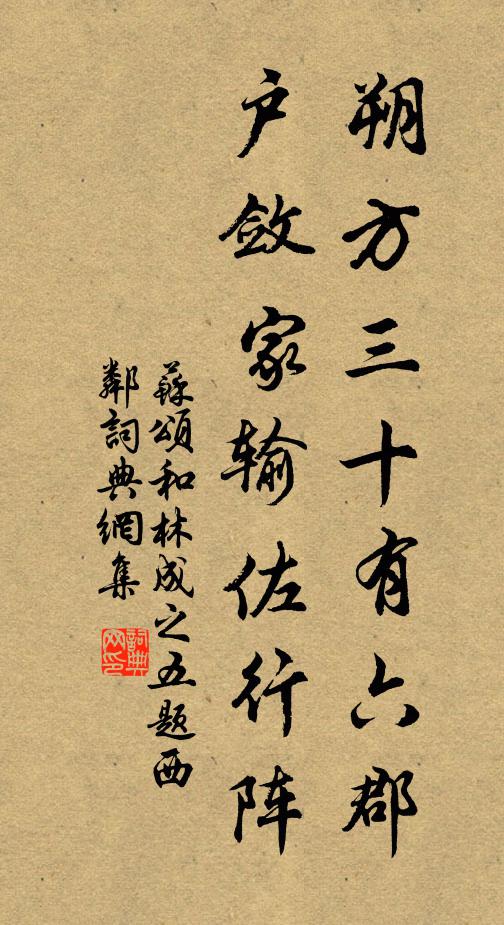 朔方三十有六郡
户斂家输佐行阵
蘇頌和林成之五題西
鄰詞典網集
詞典
网印